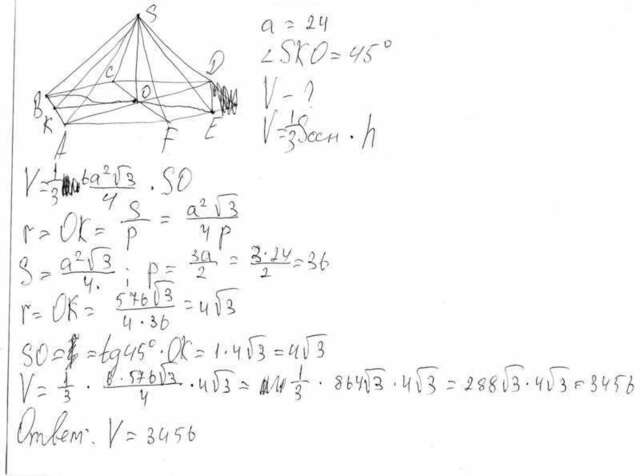 S
a = 24
∠SKO = 45°
C
D
V - ?
B
O
K
E
A
F
V = 1/3 Sосн · h
V = 1/3 6a²√3/4 · SO
r = OK = S/p = a²√3/4p
S = a²√3/4. ; p = 3a/2 = 3·24/2 = 36
r = OK = 576√3/4·36 = 4√3
SO = = tg45° · OK = 1·4√3 = 4√3
V = 1/3 · 6·576√3/4 · 4√3 = 1/3 · 864√3 · 4√3 = 288√3 · 4√3 = 3456
Ответ: V = 3456